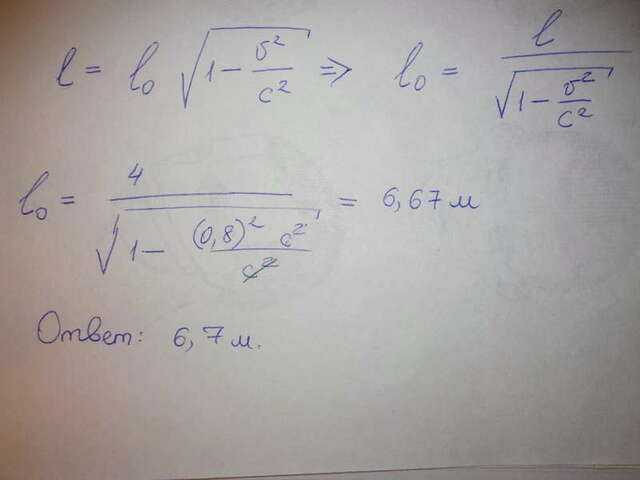 l = l₀ √(1 − υ²/c²) ⇒ l₀ = l / √(1 − υ²/c²)
l₀ = 4 / √(1 − (0,8)² c²/c²) = 6,67 м
Ответ: 6,7 м.